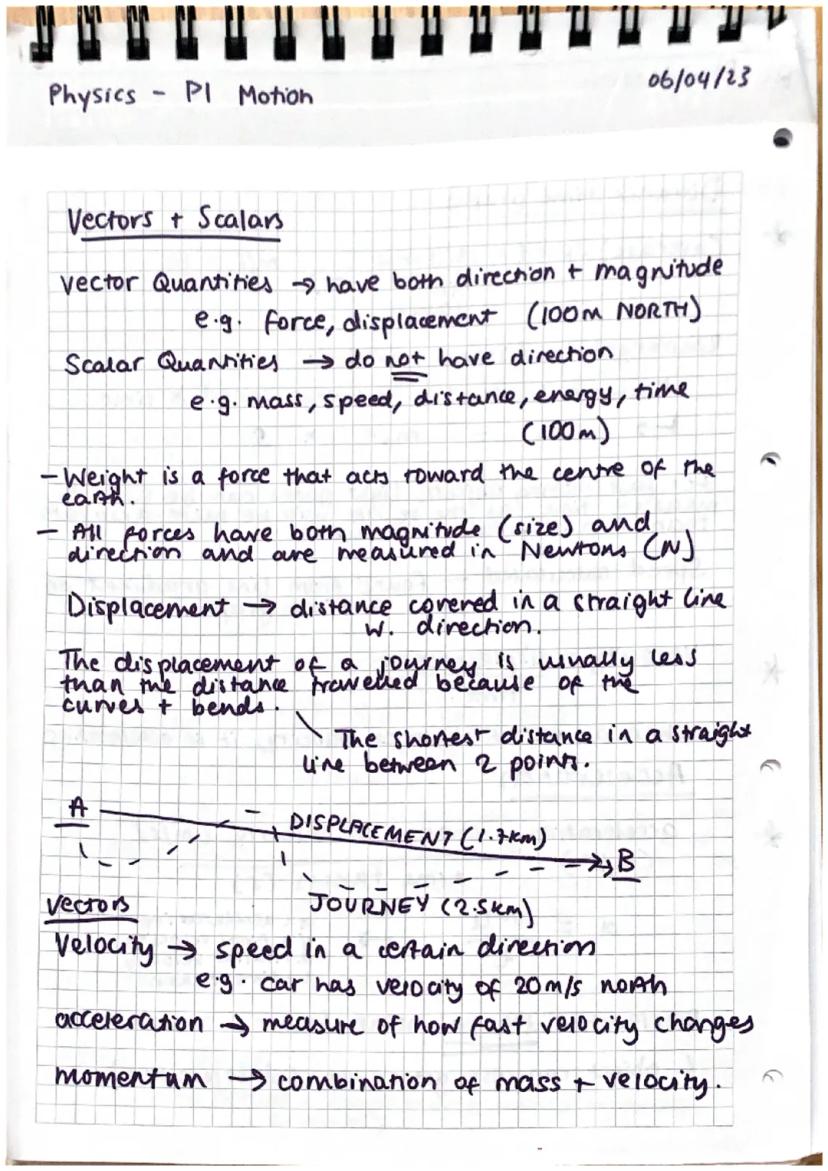 Physics - P1 Motion
06/04/23
Vectors + Scalars
Vector Quantities → have both direction + magnitude
e.g. force, displacement (100m NORTH)
Scalar Quantities → do not have direction
e.g. mass, speed, distance, energy, time
(100m)
- Weight is a force that acts toward the centre of the
earth.
- All forces have both magnitude (size) and
direction and are measured in Newtons (N)
Displacement → distance covered in a straight line
w. direction.
The displacement of a journey is usually less
than the distance travelled because of the
curves + bends.
The shortest distance in a straight
line between 2 points.
A
DISPLACEMENT (1.7km)
B
JOURNEY (2.5km)
Vectors
Velocity → speed in a certain direction
e.g. car has velocity of 20m/s north
acceleration → measure of how fast velocity changes
momentum → combination of mass + velocity.